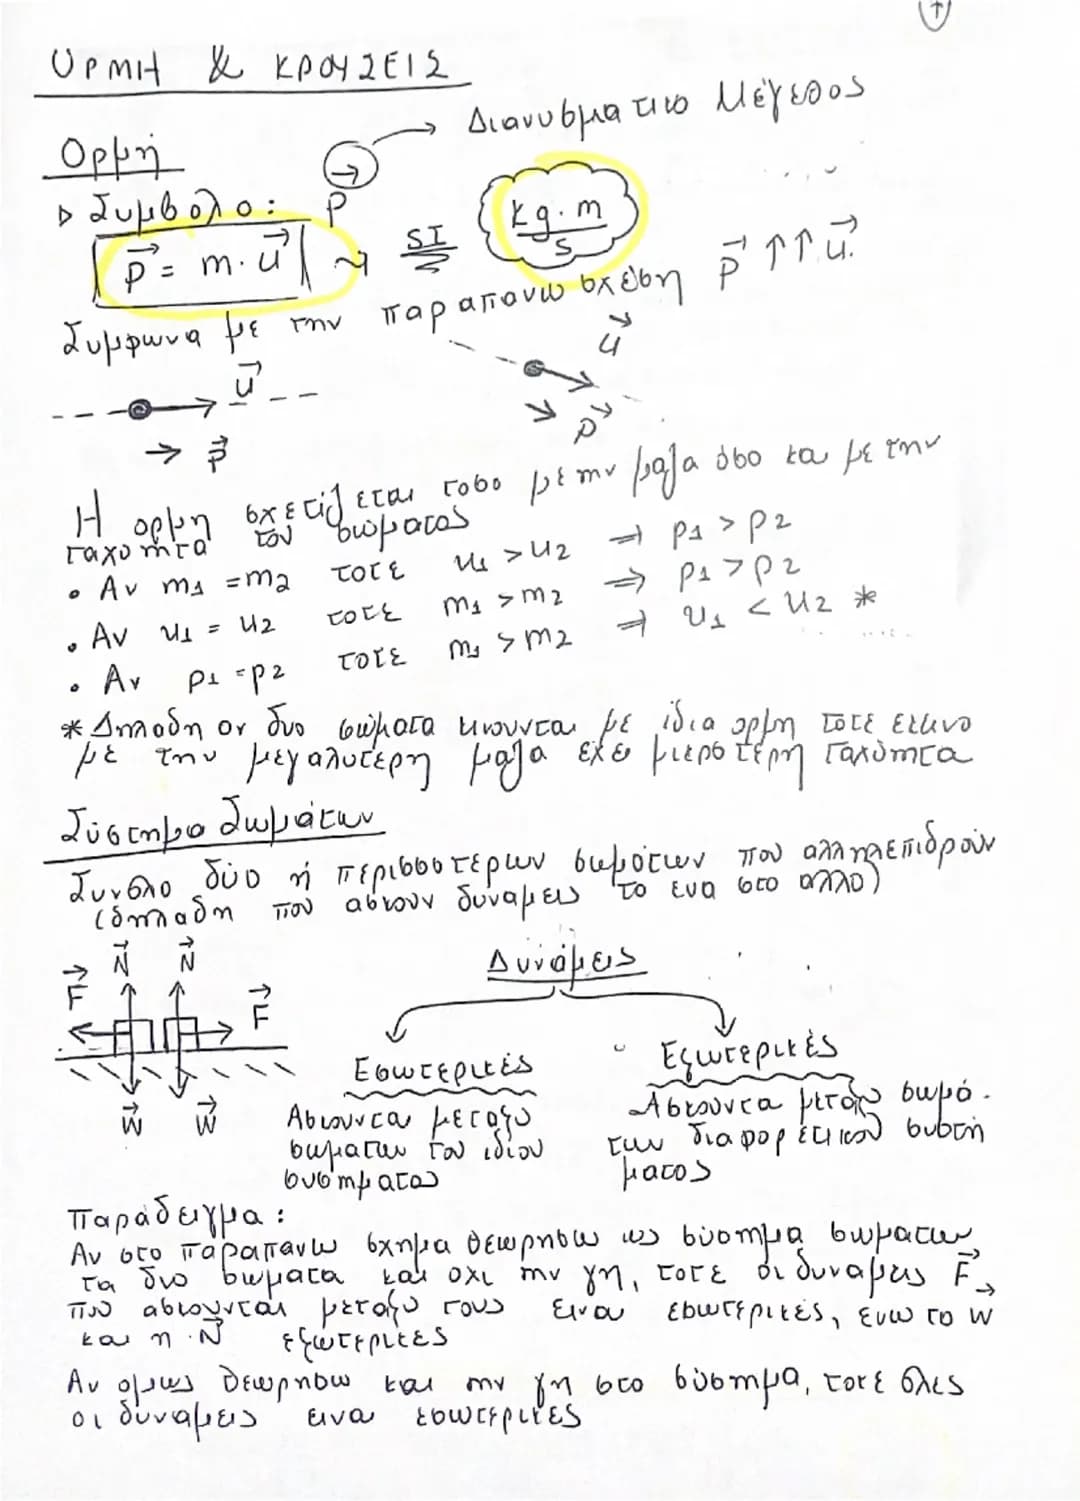 ΟΡΜΗ & ΚΡΟΥΣΕΙΣ
Ορμή
▷ Συμβολο: p⃗ → Διανυσματικο Μέγεθος
p⃗ = m·u⃗ ~ SI kg·m/s
Συμφωνα με την παραπανω σχεση p⃗ ↑↑ u⃗.
u⃗ u⃗
p⃗ p⃗
Η ορμη σχετιζεται τοσο με την μαζα όσο και με την
ταχυτητα του σωματος
• Αν m₁ = m₂ τοτε u₁ > u₂ ⇒ p₁ > p₂
• Αν u₁ = u₂ τοτε m₁ > m₂ ⇒ p₁ > p₂
• Αν p₁ = p₂ τοτε m₁ > m₂ ⇒ u₁ < u₂ *
* Δηλαδη αν δυο σώματα κινουνται με ίδια ορμη τοτε εκεινο
με την μεγαλυτερη μαζα εχει μικροτερη ταχύτητα
Σύστημα Σωμάτων
Συνολο δύο ή περισσοτέρων σωμάτων που αλληλεπιδρούν
(δηλαδη που ασκουν δυναμεις το ενα στο αλλο)
N⃗ N⃗
F⃗ F⃗
W⃗ W⃗
Δυνάμεις
Εσωτερικές Εξωτερικές
Ασκουνται μεταξυ
σωματων του ιδιου
συστηματος
Ασκουνται μεταξυ σωμά-
των διαφορετικου συστή
ματος
Παράδειγμα:
Αν στο παραπανω σχημα θεωρησω ως συστημα σωματων
τα δυο σωματα και οχι την γη, τοτε οι δυναμεις F⃗
που ασκουνται μεταξυ τους ειναι εσωτερικές, ενω το W⃗
και η N⃗ εξωτερικες
Αν ομως θεωρησω και την γη στο σύστημα, τοτε όλες
οι δυναμεις ειναι εσωτερικες